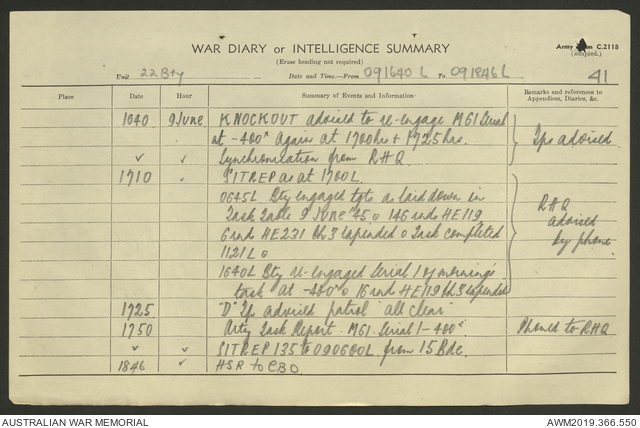 WAR DIARY or INTELLIGENCE SUMMARY
Army Form C.2118
(Erase heading not required)
Unit 22 Bty Date and Time.—From 091640 L To 091846 L
41
Place Date Hour Summary of Events and Information Remarks and references to Appendices, Diaries, &c.
1640 9 June KNOCKOUT advised to re-engage M61 Serial
at -400x again at 1700hrs + 1725 hrs. Tps advised
✓ ✓ Synchronisation from RHQ.
1710 SITREP as at 1700L.
0645L Bty engaged tgts as laid down in
Task Table 9 JUNE '45 146 rnds HE119
6 rnds HE231 expended Task completed
1121L
1640L Bty re-engaged Serial 1 of mornings
task at -400x 16 rnds HE119 expended
RHQ
advised
by phone.
1725 "D" Tp advised patrol "all clear"
1750 Arty Task Report - M61 - Serial 1 - 400x Phoned to RHQ
✓ ✓ SITREP 135 to 090600L from 15 Bde
1846 ✓ HSR to CBO
AUSTRALIAN WAR MEMORIAL
AWM2019.366.550